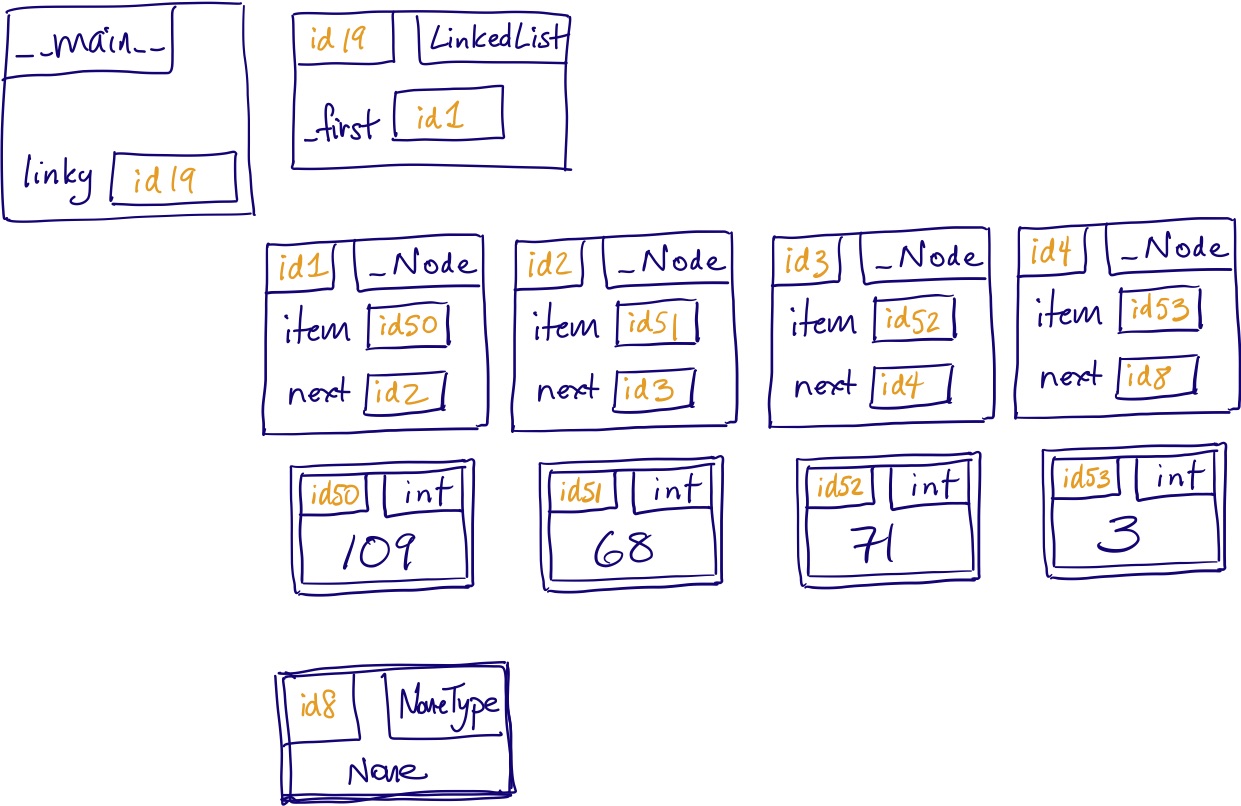 __main__
linky id19
id19 LinkedList
_first id1
id1 _Node
item id50
next id2
id2 _Node
item id51
next id3
id3 _Node
item id52
next id4
id4 _Node
item id53
next id8
id50 int
109
id51 int
68
id52 int
71
id53 int
3
id8 NoneType
None